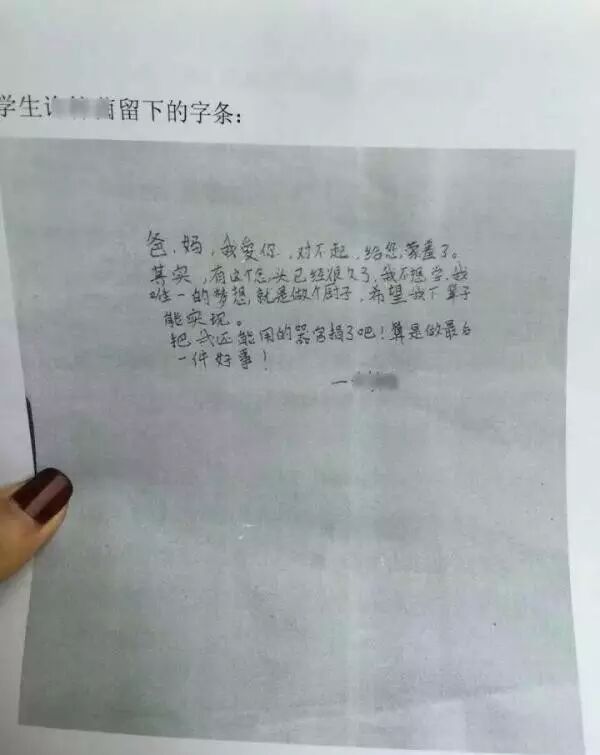 学生留下的字条:
爸.妈,我爱你,对不起,给您蒙羞了。
其实,有这个念头已经很久了,我不想学,我
唯一的梦想,就是做个厨子,希望我下辈子
能实现。
把我还能用的器官捐了吧!算是做最后
一件好事!